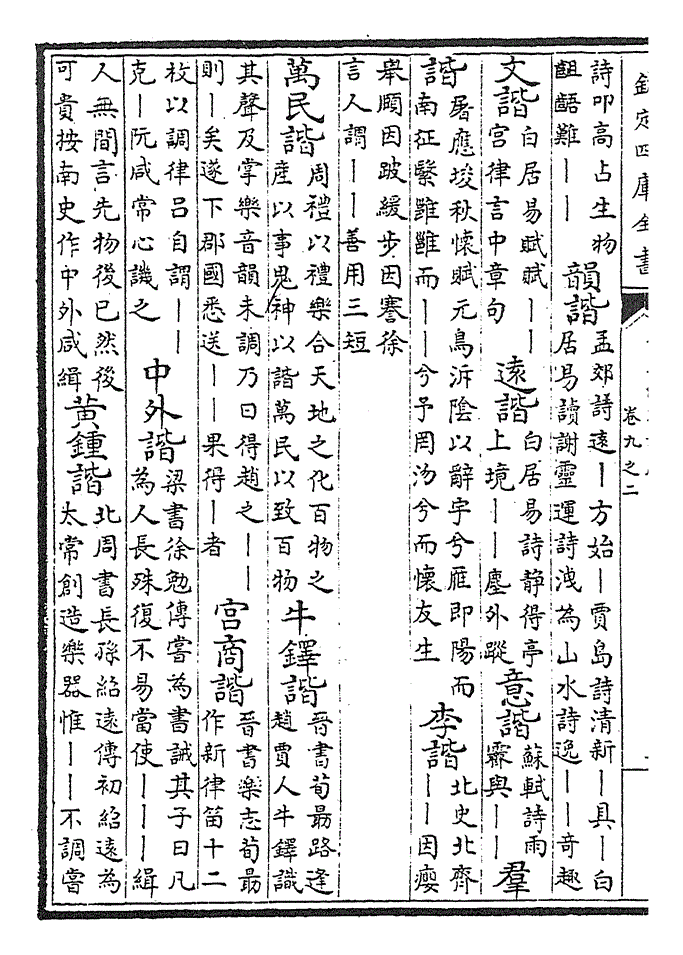 欽定四庫全書
卷九之二
詩叩高占生物
齟齬難丨丨
韻諧
孟郊詩遠丨方始丨賈島詩清新丨具丨白
居易讀謝靈運詩洩為山水詩逸丨丨奇趣
文諧
白居易賦賦丨丨
宮律言中章句
遠諧
白居易詩靜得亭
上境丨丨塵外蹤
意諧
蘇軾詩雨
霽與丨丨
羣
諧
屠應埈秋懷賦元鳥泝陰以辭宇兮雁即陽而
南征繄雝雝而丨丨兮予罔汸兮而懷友生
李諧
北史北齊
丨丨因癭
舉頤因跛緩步因謇徐
言人謂丨丨善用三短
萬民諧
周禮以禮樂合天地之化百物之
產以事鬼神以諧萬民以致百物
牛鐸諧
晉書荀勗路逢
趙賈人牛鐸識
其聲及掌樂音韻未調乃曰得趙之丨丨
則丨矣遂下郡國悉送丨丨果得丨者
宮商諧
晉書樂志荀勗
作新律笛十二
枚以調律呂自謂丨丨
克丨阮咸常心譏之
中外諧
梁書徐勉傳嘗為書誡其子曰凡
為人長殊復不易當使丨丨丨緝
人無間言先物後已然後
可貴按南史作中外咸緝
黃鍾諧
北周書長孫紹遠傳初紹遠為
太常創造樂器惟丨丨不調嘗